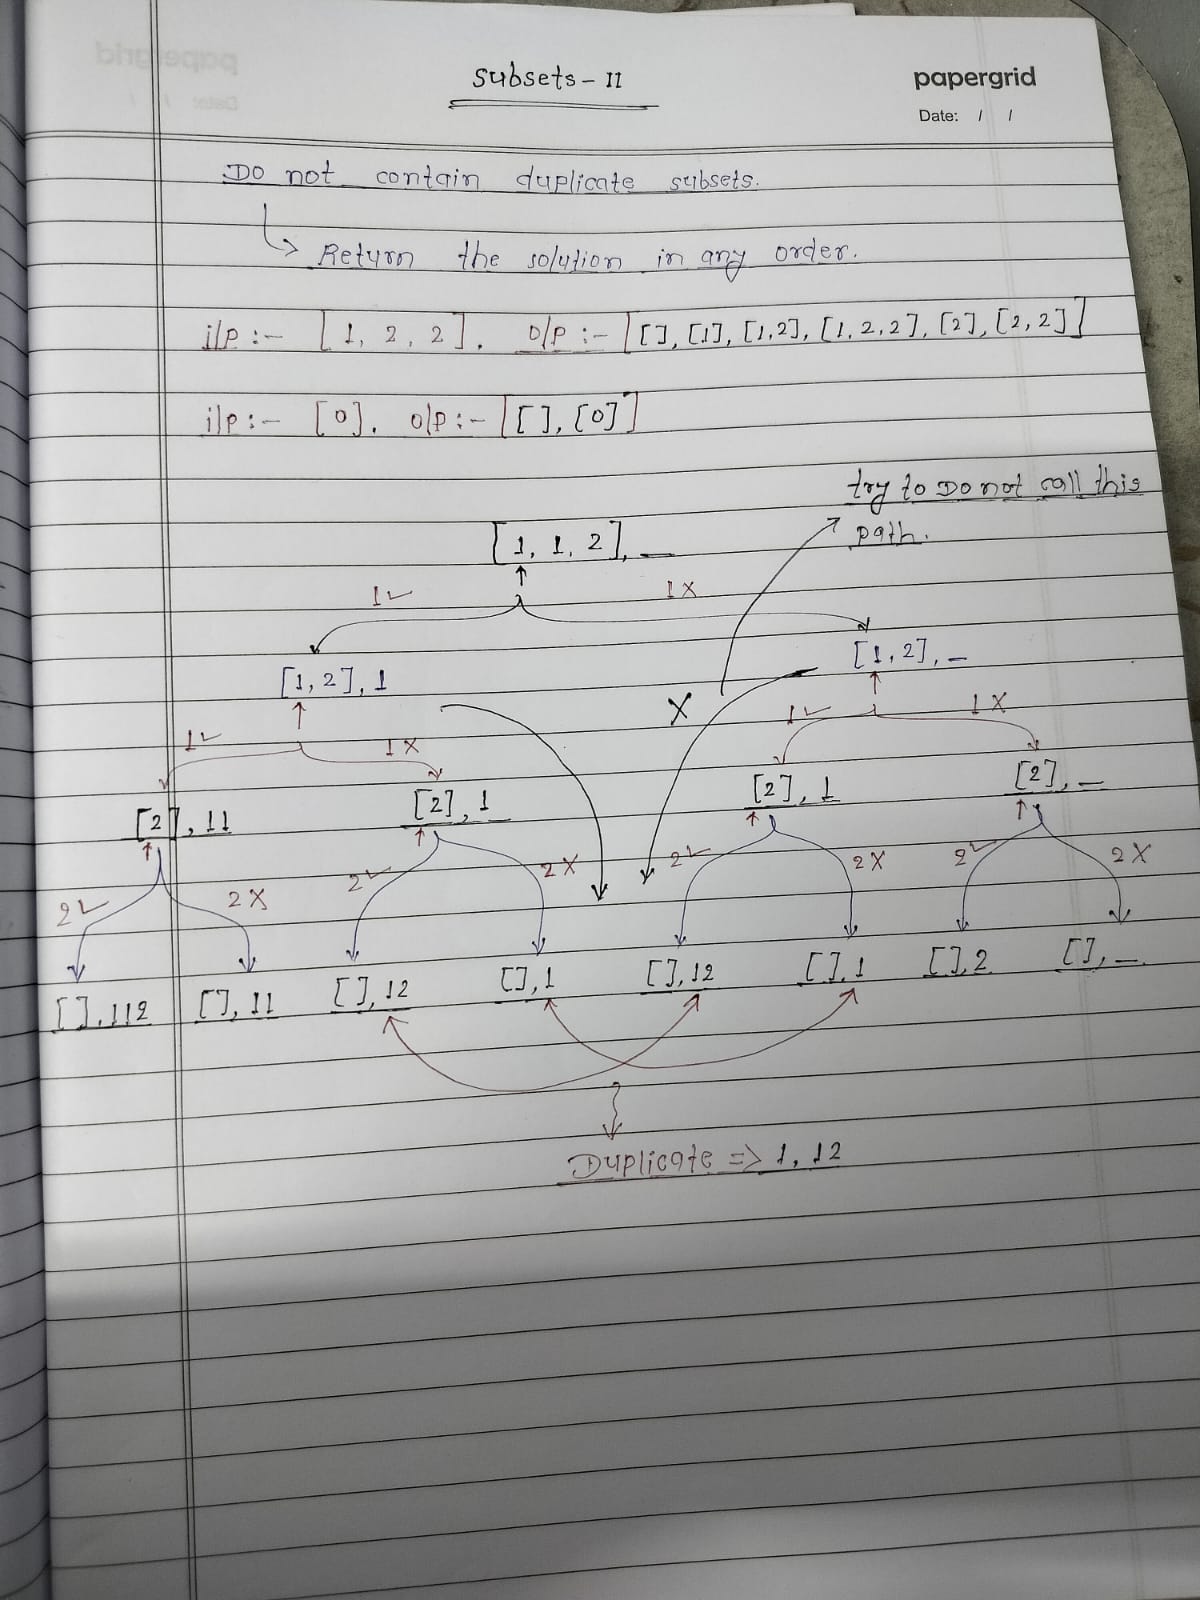 Subsets - II
papergrid
Date: / /
Do not contain duplicate subsets.
Return the solution in any order.
i/p :- [1, 2, 2]. o/p :- [[], [1], [1,2], [1,2,2], [2], [2,2]]
i/p :- [0]. o/p :- [[ ], [0]]
try to Do not call this
path.
[1, 1, 2], _
1✓ 1X
[1, 2], 1 [1, 2], _
X
1✓ 1X 1✓ 1X
[2], 11 [2], 1 [2], 1 [2], _
2✓ 2X 2✓ 2X 2✓ 2X 2✓ 2X
[], 112 [], 11 [], 12 [], 1 [], 12 [], 1 [], 2 [], _
Duplicate => 1, 12